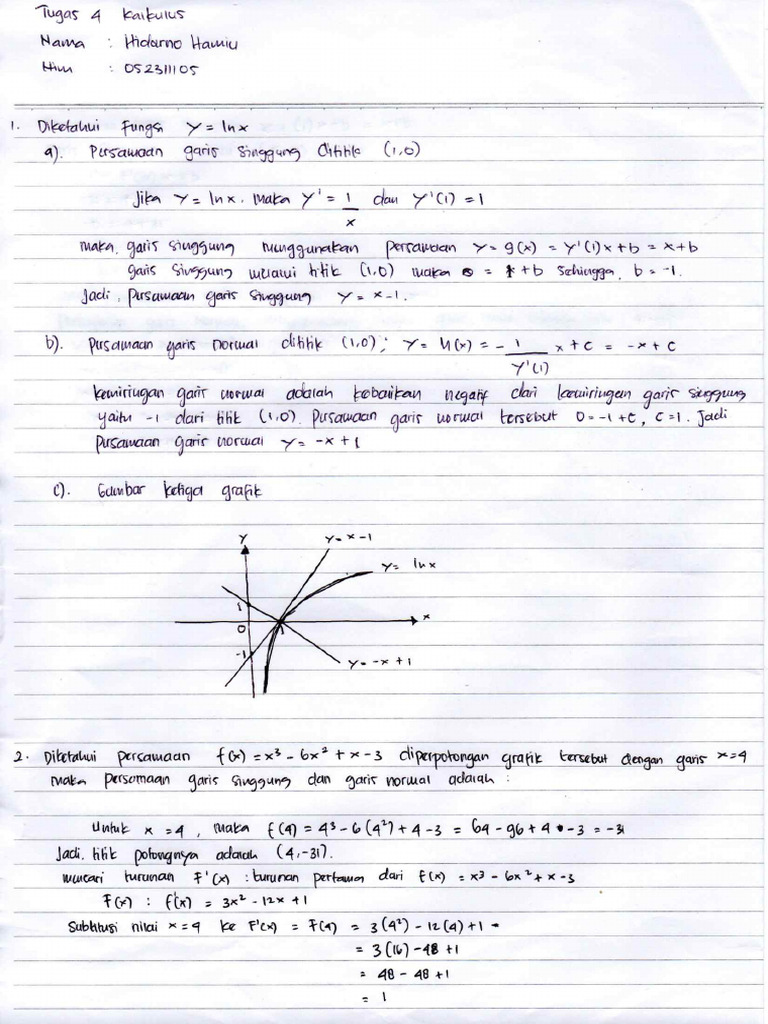 Tugas 4 Kalkulus
Nama : Hidarno Hamiu
Nim : 052311105
1. Diketahui Fungsi y = ln x
a). Persamaan garis singgung dititik (1,0)
Jika y = ln x. Maka y' = 1/x dan y'(1) = 1
maka, garis singgung menggunakan persamaan y = g(x) = y'(1)x + b = x + b
garis singgung melalui titik (1,0) maka 0 = 1 + b sehingga b = -1.
Jadi, Persamaan garis singgung y = x - 1.
b). Persamaan garis normal dititik (1,0); y = h(x) = - 1/y'(1) x + c = -x + c
kemiringan garis normal adalah kebalikan negatif dari kemiringan garis singgung
yaitu -1 dari titik (1,0). Persamaan garis normal tersebut 0 = -1 + c, c = 1. Jadi
Persamaan garis normal y = -x + 1
c). Gambar ketiga grafik
y
y = x - 1
y = ln x
1
x
0
1
-1
y = -x + 1
2. Diketahui persamaan f(x) = x³ - 6x² + x - 3 diperpotongan grafik tersebut dengan garis x = 4
maka persamaan garis singgung dan garis normal adalah :
Untuk x = 4, maka f(4) = 4³ - 6(4²) + 4 - 3 = 64 - 96 + 4 - 3 = -31
Jadi, titik potongnya adalah (4, -31).
mencari turunan F'(x) : turunan pertama dari f(x) = x³ - 6x² + x - 3
F(x) : f'(x) = 3x² - 12x + 1
Subtitusi nilai x = 4 ke F'(x) = F(4) = 3(4²) - 12(4) + 1
= 3(16) - 48 + 1
= 48 - 48 + 1
= 1